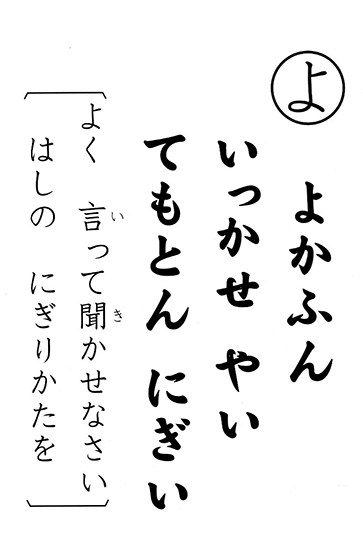 よ
よかふん
いっかせ やい
てもとん にぎい
よく 言って聞かせなさい
はしの にぎりかたを